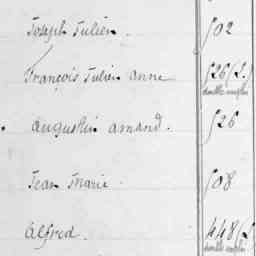 Joseph Julien. 502
François Julien Anne 526 (2.)
double emploi
Augustin Amand. 526
Jean Marie 508
Alfred. 448 (2
double emploi